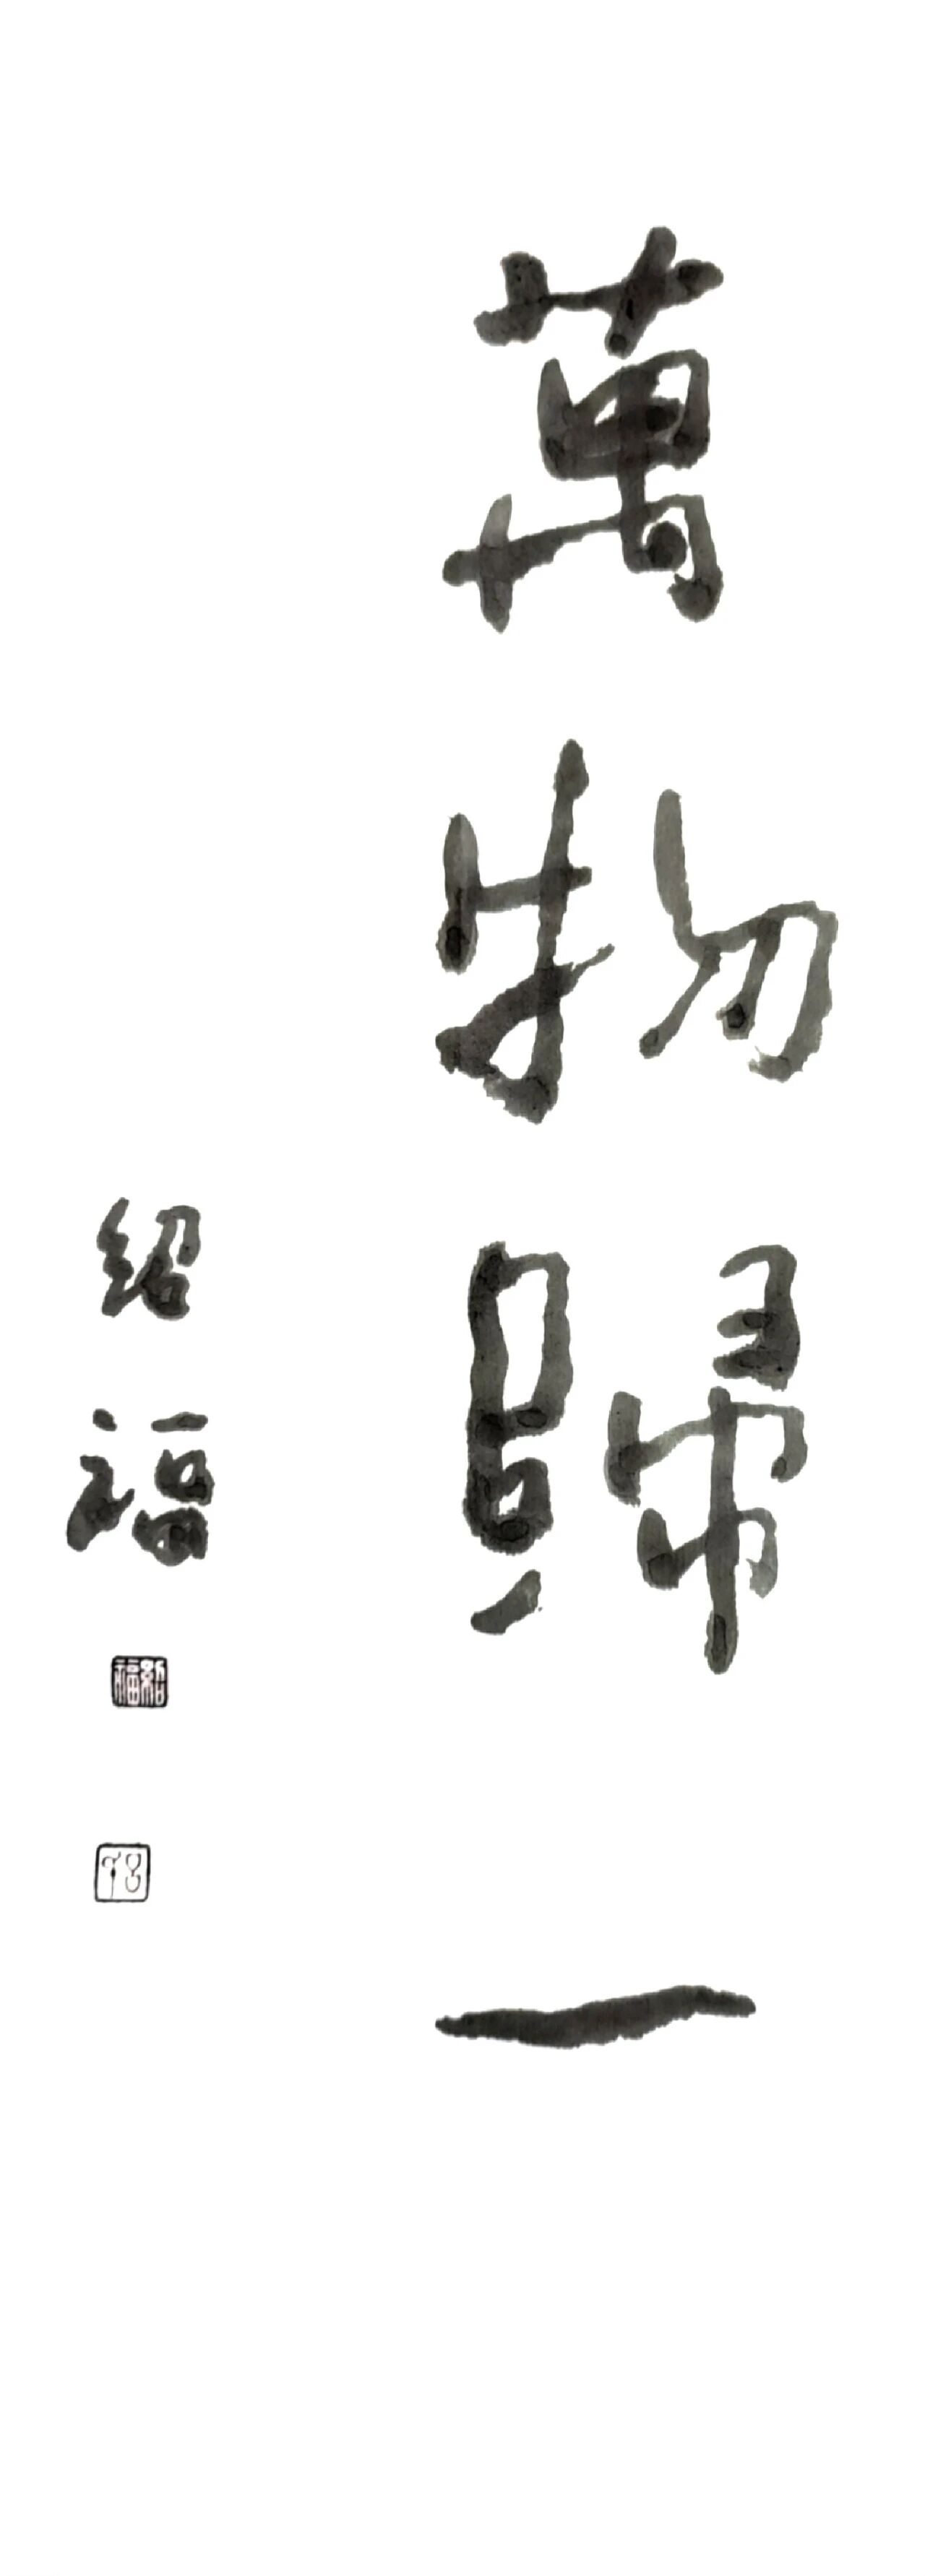 萬物歸一
紹福
紹福